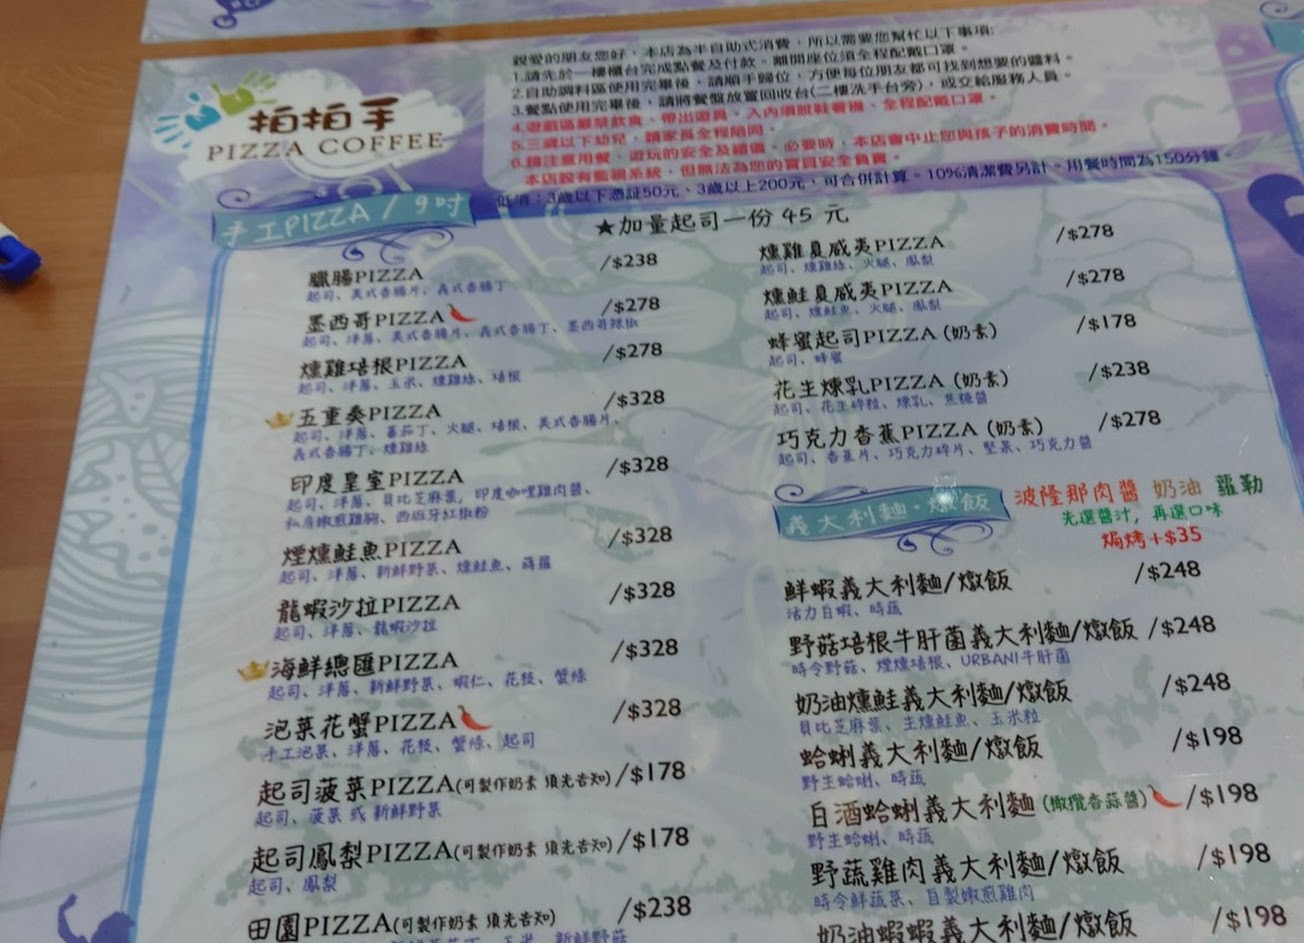 拍拍手
PIZZA COFFEE
親愛的朋友您好，本店為半自助式消費，所以需要您幫忙以下事項:
1.請先於一樓櫃台完成點餐及付款。離開座位須全程配戴口罩。
2.自助調料區使用完畢後，請順手歸位，方便每位朋友都可找到想要的醬料。
3.餐點使用完畢後，請將餐盤放置回收台(二樓洗手台旁)，或交給服務人員。
4.遊戲區嚴禁飲食、帶出遊具。入內須脫鞋著襪、全程配戴口罩。
5.三歲以下幼兒，請家長全程陪同。
6.請注意用餐、遊玩的安全及禮儀。必要時，本店會中止您與孩子的消費時間。
本店設有監視系統，但無法為您的寶貝安全負責。
低消：3歲以下憑証50元、3歲以上200元，可合併計算。10%清潔費另計。用餐時間為150分鐘。
手工PIZZA / 9吋
★加量起司一份 45 元
臘腸PIZZA /$238
起司、美式香腸片、義式香腸丁
墨西哥PIZZA /$278
起司、洋蔥、美式香腸片、義式香腸丁、墨西哥辣椒
燻雞培根PIZZA /$278
起司、洋蔥、玉米、燻雞絲、培根
五重奏PIZZA /$328
起司、洋蔥、蕃茄丁、火腿、培根、美式香腸片、
義式香腸丁、燻雞絲
印度皇室PIZZA /$328
起司、洋蔥、貝比芝麻葉，印度咖哩雞肉醬、
私房嫩煎雞胸、西班牙紅椒粉
煙燻鮭魚PIZZA /$328
起司、洋蔥、新鮮野菜、燻鮭魚、蒔蘿
龍蝦沙拉PIZZA /$328
起司、洋蔥、龍蝦沙拉
海鮮總匯PIZZA /$328
起司、洋蔥、新鮮野菜、蝦仁、花枝、蟹條
泡菜花蟹PIZZA /$328
手工泡菜、洋蔥、花枝、蟹條、起司
起司菠菜PIZZA(可製作奶素 須先告知) /$178
起司、菠菜 或 新鮮野菜
起司鳳梨PIZZA(可製作奶素 須先告知) /$178
起司、鳳梨
田園PIZZA(可製作奶素 須先告知) /$238
玉米、新鮮野菇
燻雞夏威夷PIZZA /$278
起司、燻雞絲、火腿、鳳梨
燻鮭夏威夷PIZZA /$278
起司、燻鮭魚、火腿、鳳梨
蜂蜜起司PIZZA (奶素) /$178
起司、蜂蜜
花生煉乳PIZZA (奶素) /$238
起司、花生碎粒、煉乳、焦糖醬
巧克力香蕉PIZZA (奶素) /$278
起司、香蕉片、巧克力碎片、堅果、巧克力醬
義大利麵・燉飯
波隆那肉醬 奶油 蘿勒
先選醬汁，再選口味
焗烤+$35
鮮蝦義大利麵/燉飯 /$248
活力白蝦、時蔬
野菇培根牛肝菌義大利麵/燉飯 /$248
時令野菇、煙燻培根、URBANI牛肝菌
奶油燻鮭義大利麵/燉飯 /$248
貝比芝麻葉、生燻鮭魚、玉米粒
蛤蜊義大利麵/燉飯 /$198
野生蛤蜊、時蔬
白酒蛤蜊義大利麵 (橄欖香蒜醬) /$198
野生蛤蜊、時蔬
野蔬雞肉義大利麵/燉飯 /$198
時令鮮蔬菜、自製嫩煎雞肉
奶油蝦蝦義大利麵/燉飯 /$198